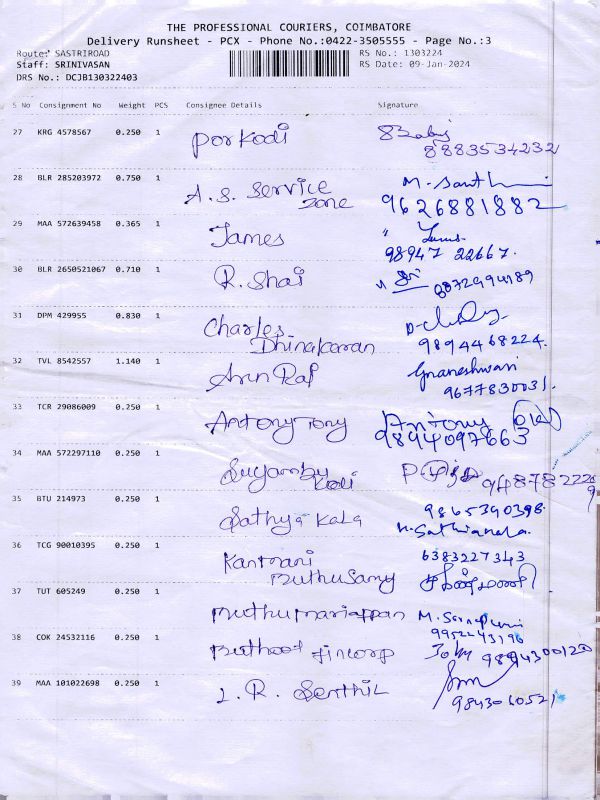 THE PROFESSIONAL COURIERS, COIMBATORE
Delivery Runsheet - PCX - Phone No.:0422-3505555 - Page No.:3
Route: SASTRIROAD RS No.: 1303224
Staff: SRINIVASAN RS Date: 09-Jan-2024
DRS No.: DCJB130322403
S No Consignment No Weight PCS Consignee Details Signature
27 KRG 4578567 0.250 1 Porkodi
8883534232
28 BLR 285203972 0.750 1 A.S. Service M. Santhi
Zone 9626881882
29 MAA 572639458 0.365 1 James
98947 22667.
30 BLR 2650521067 0.710 1 R. Shai
31 DPM 429955 0.830 1 Charles
Dhinakaran 9894468224.
32 TVL 8542557 1.140 1 Arun Raj Gnaneshwari
9677830031.
33 TCR 29086009 0.250 1 Antony Tony Antony
9894097663
34 MAA 572297110 0.250 1 Suyambu
Kodi
35 BTU 214973 0.250 1 Sathya Kala 9865390398.
36 TCG 90010395 0.250 1 Kanmani 6383227343
Muthusamy
37 TUT 605249 0.250 1 Muthumariappan
9952243196
38 COK 24532116 0.250 1 Muthoot Fincorp 9894300120
39 MAA 101022698 0.250 1 J. R. Senthil
9843060521